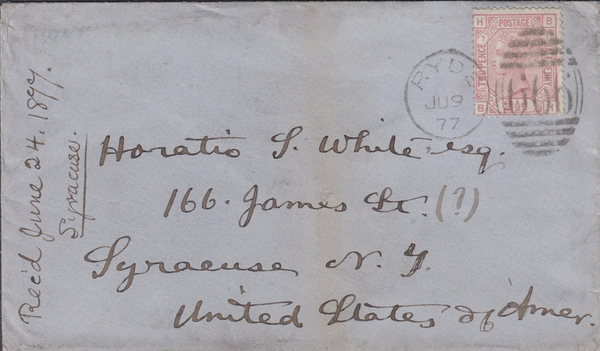 H POSTAGE B
TWO PENCE
HALFPENNY
B H
RYDE
JU 9
77
Horatio S. White esq.
166. James St. (?)
Syracuse N. Y.
United States of Amer.
Rec'd June 24. 1877.
Syracuse.